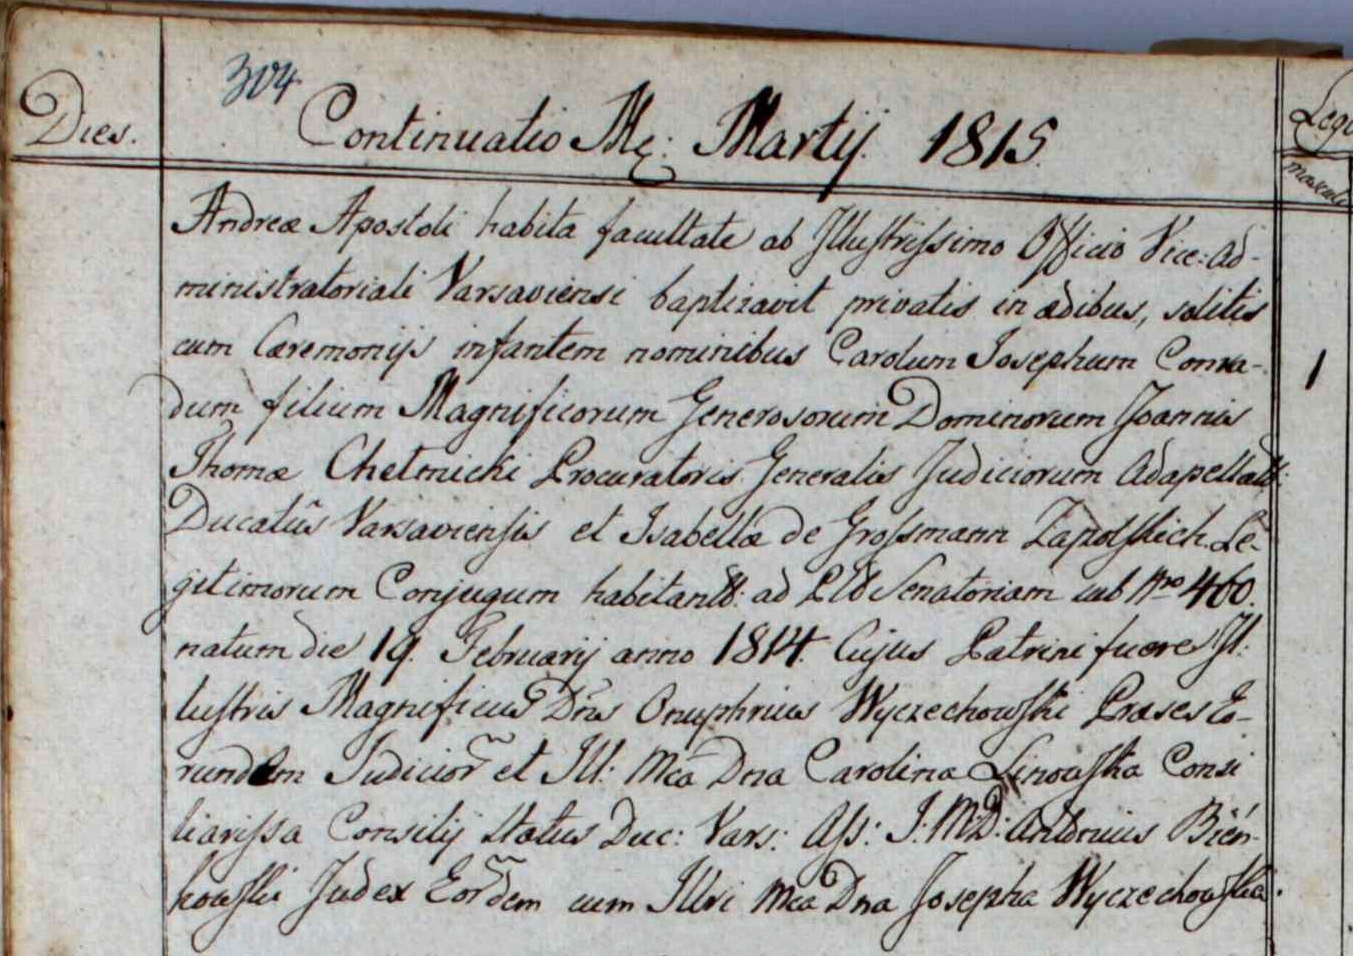 304
Dies.
Continuatio Mẽ: Martij. 1815.
Andreæ Apostoli habita facultate ab Illustrissimo Officio Vice-Ad-
ministratoriali Varsaviensi baptizavit privatis in ædibus, solitis
cum Cæremonijs infantem nominibus Carolum Josephum Conra-
dum filium Magnificorum Generosorum Dominorum Joannis
Thomæ Chełmicki Procuratoris Generalis Judiciorum Adapellaõ:
Ducatûs Varsaviensis et Isabellæ de Grossmann Le-
gitimorum Conjugum habitantũ: ad Senatoriam sub Nro 460.
natum die 19. Februarij anno 1814. Cujus Patrini fuere Il-
lustris Magnificus Dñs Onuphrius Wyczechowski Præses Eo-
rundem Judicior̃ et Ill: Mca Dna Carolina Linowska Consi
liarissa Consilij Status Duc: Vars: Ass: I. M. D: Antonius Bień-
kowski Judex Eor̃dem cum Illri Mca Dna Josepha Wyczechowska.
1